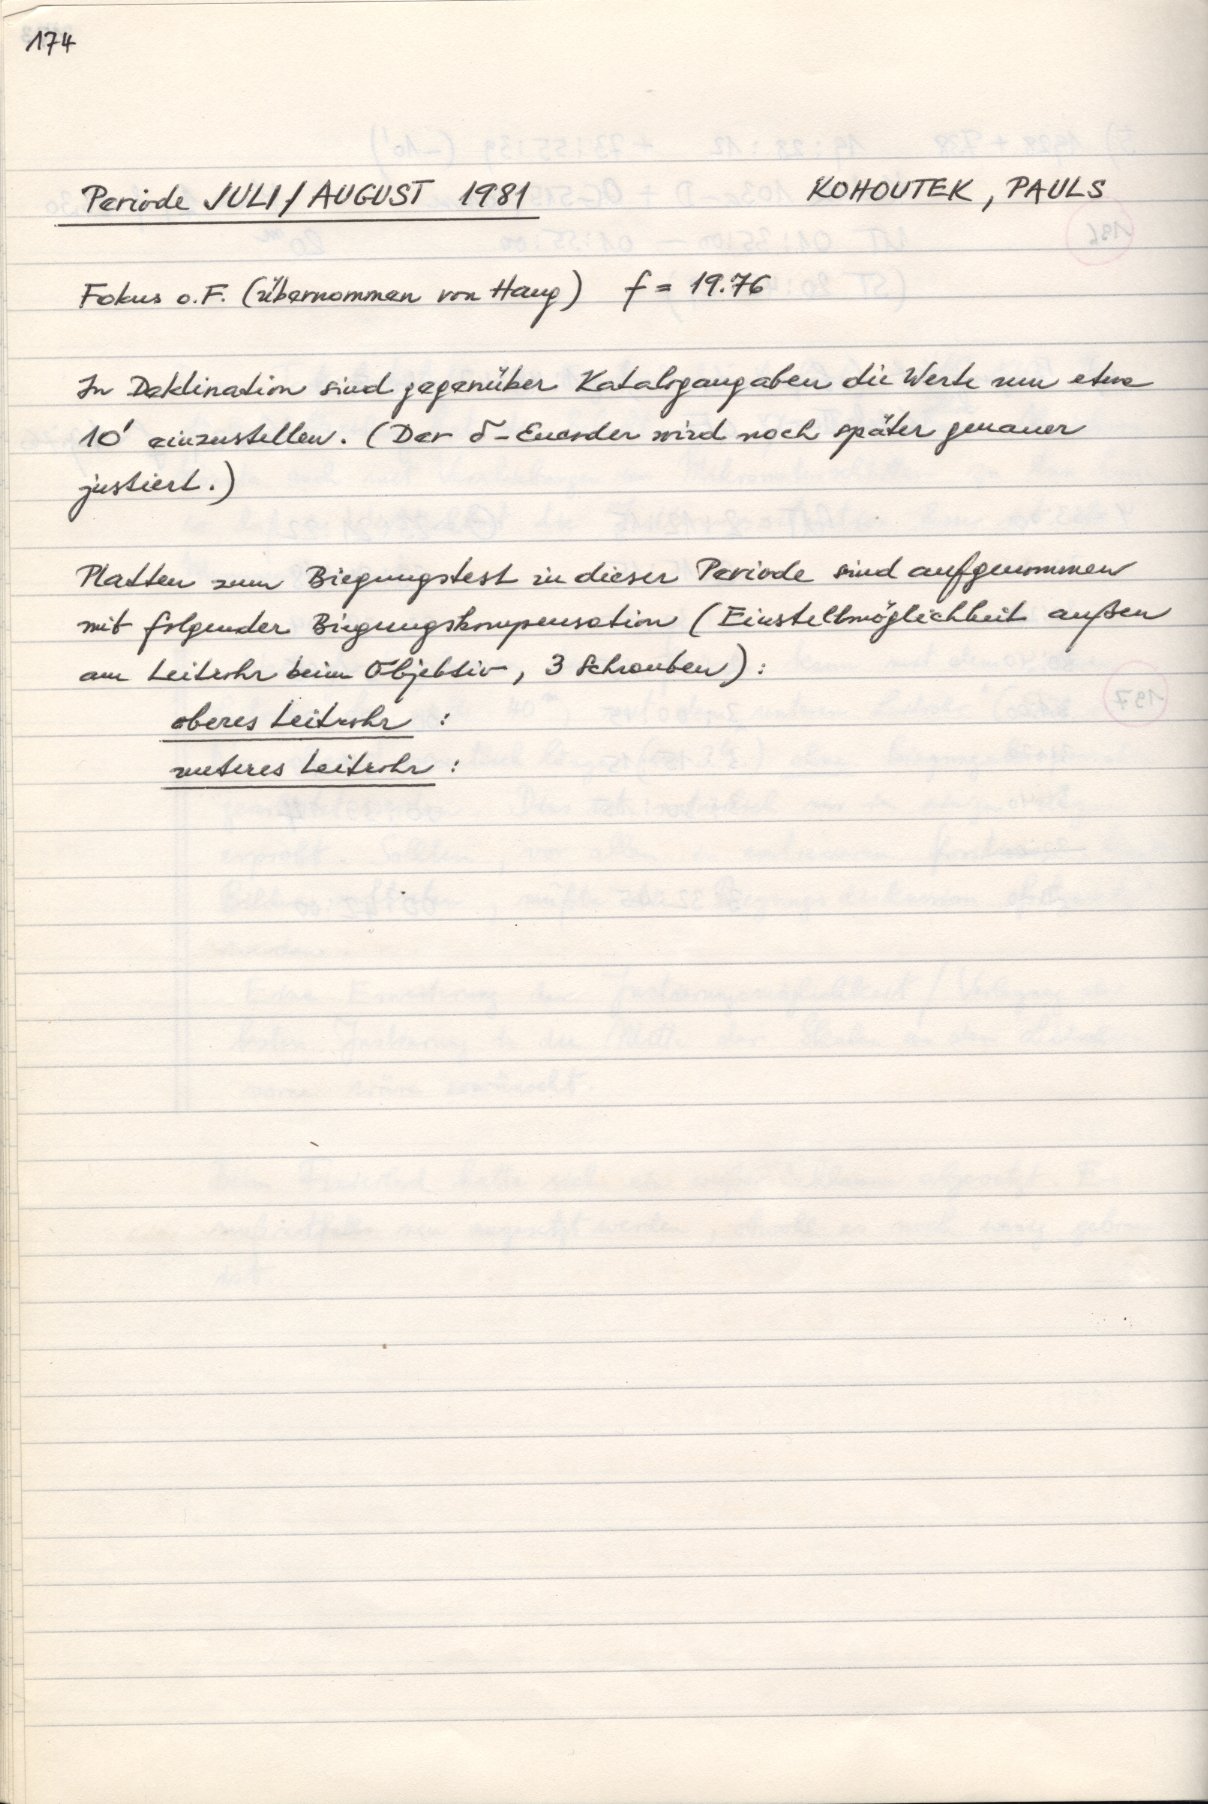 174
Periode JULI/AUGUST 1981 KOHOUTEK, PAULS
Fokus o.F. (übernommen von Haug) f = 19.76
In Deklination sind gegenüber Katalogangaben die Werte um etwa
10' einzustellen. (Der δ-Encoder wird noch später genauer
justiert.)
Platten zum Biegungstest in dieser Periode sind aufgenommen
mit folgender Biegungskompensation (Einstellmöglichkeit außen
am Leitrohr beim Objektiv, 3 Schrauben):
oberes Leitrohr :
unteres Leitrohr :